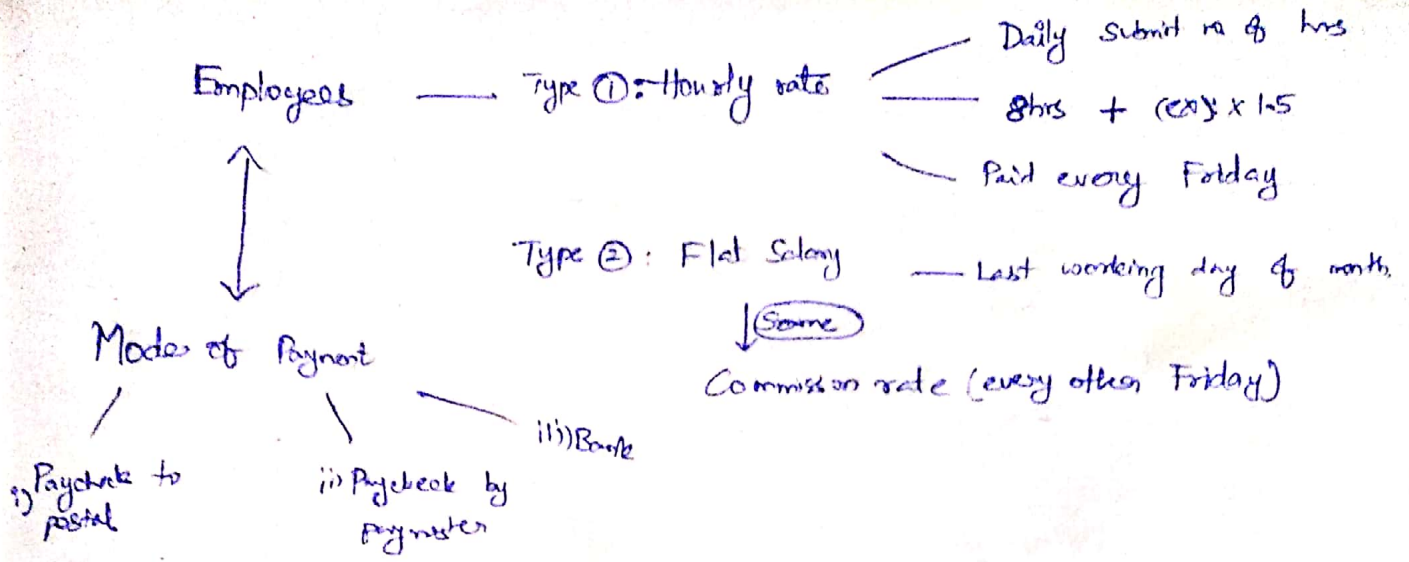 Daily Submit no of hrs
Employees — Type ①: Hourly rate
8hrs + (ex) x 1.5
Paid every Friday
Type ②: Flat Salary — Last working day of month.
Some
Commission rate (every other Friday)
Modes of Payment
i) Paycheck to postal
ii) Paycheck by paymaster
iii) Bank